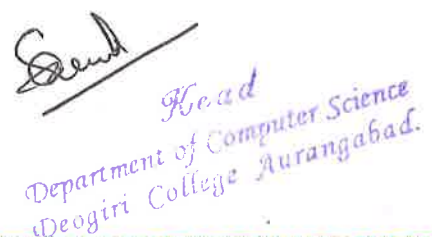 Head
Department of Computer Science
Deogiri College Aurangabad.